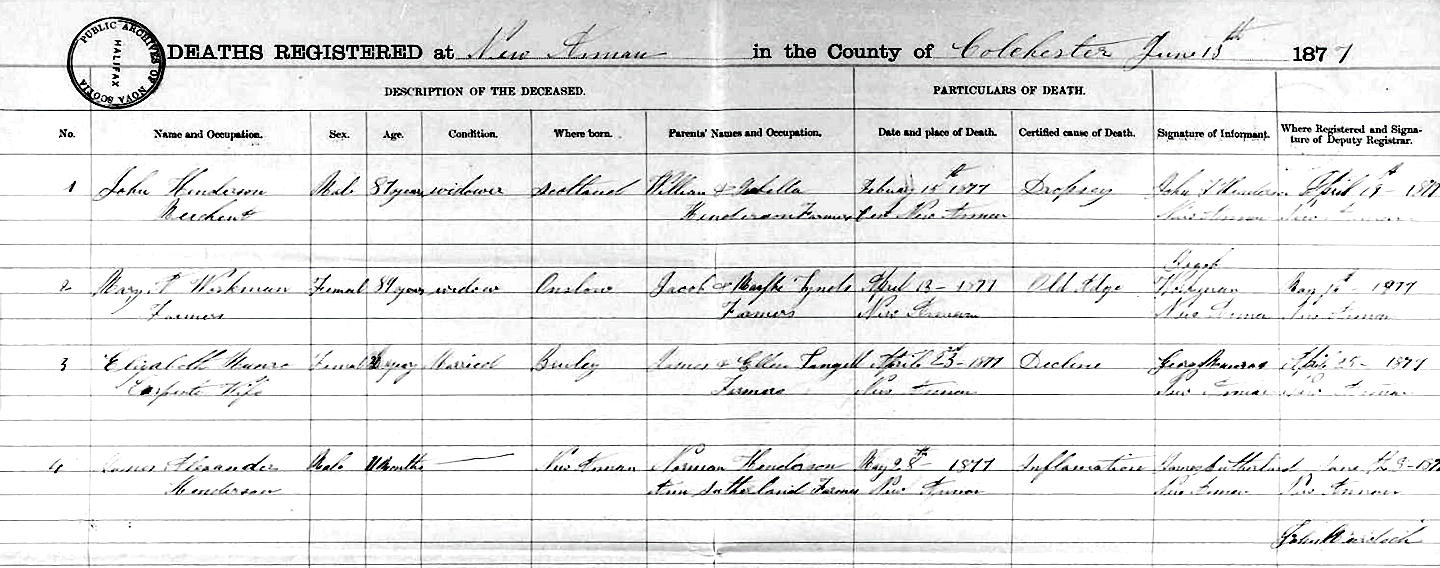 PUBLIC ARCHIVES OF NOVA SCOTIA
HALIFAX
DEATHS REGISTERED at New Annan in the County of Colchester June 13th 1877
DESCRIPTION OF THE DECEASED. PARTICULARS OF DEATH.
No. Name and Occupation. Sex. Age. Condition. Where born. Parents' Names and Occupation. Date and place of Death. Certified cause of Death. Signature of Informant. Where Registered and Signature of Deputy Registrar.
1 John Henderson Male 87 years widower Scotland William & Isabella February 15th 1877 Dropsey John Henderson April 19th - 1877
Merchent Henderson Farmers New Annan New Annan New Annan
2 Mary Workman Female years widow Onslow Jacob & Lynds April 13 - 1877 Old Adge Workman May 1877
Farmers Farmers New Annan New Annan New Annan
3 Elizabeth Munro Female years Married James & Ellen April 23 - 1877 Decline George April 25 - 1877
Carpente Wife Farmers New Annan New Annan New Annan
4 James Alexander Male Months New Annan Norman Henderson May 28th 1877 Inflamation James Sutherland June 
Henderson Ann Sutherland Farmer New Annan New Annan New Annan
John Murdoch